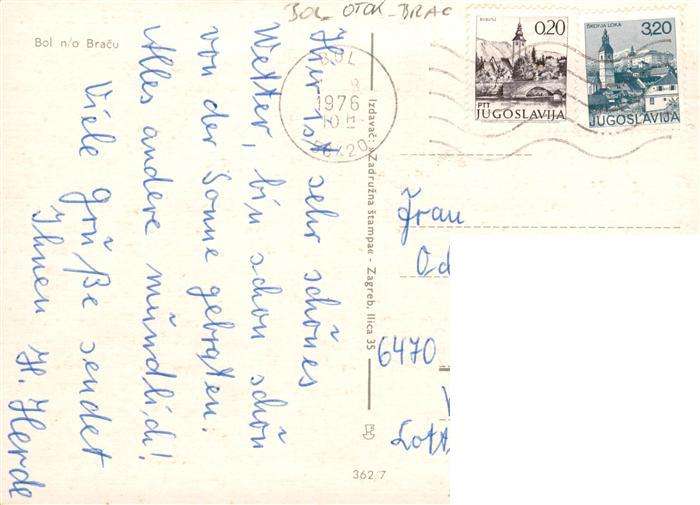 BOL OTOK - BRAC
Bol n/o Braču
Hier ist sehr schönes
Wetter, bin schon schön
von der Sonne gebraten.
Alles andere mündlich!
Viele Grüße sendet
Ihnen H. Herde
BOL
8
1976
10
Izdavač: »Zadružna štampa« - Zagreb, Ilica 35
362/7
0.20
PTT
JUGOSLAVIJA
ŠKOFJA LOKA
3,20
JUGOSLAVIJA
Frau
Od
6470